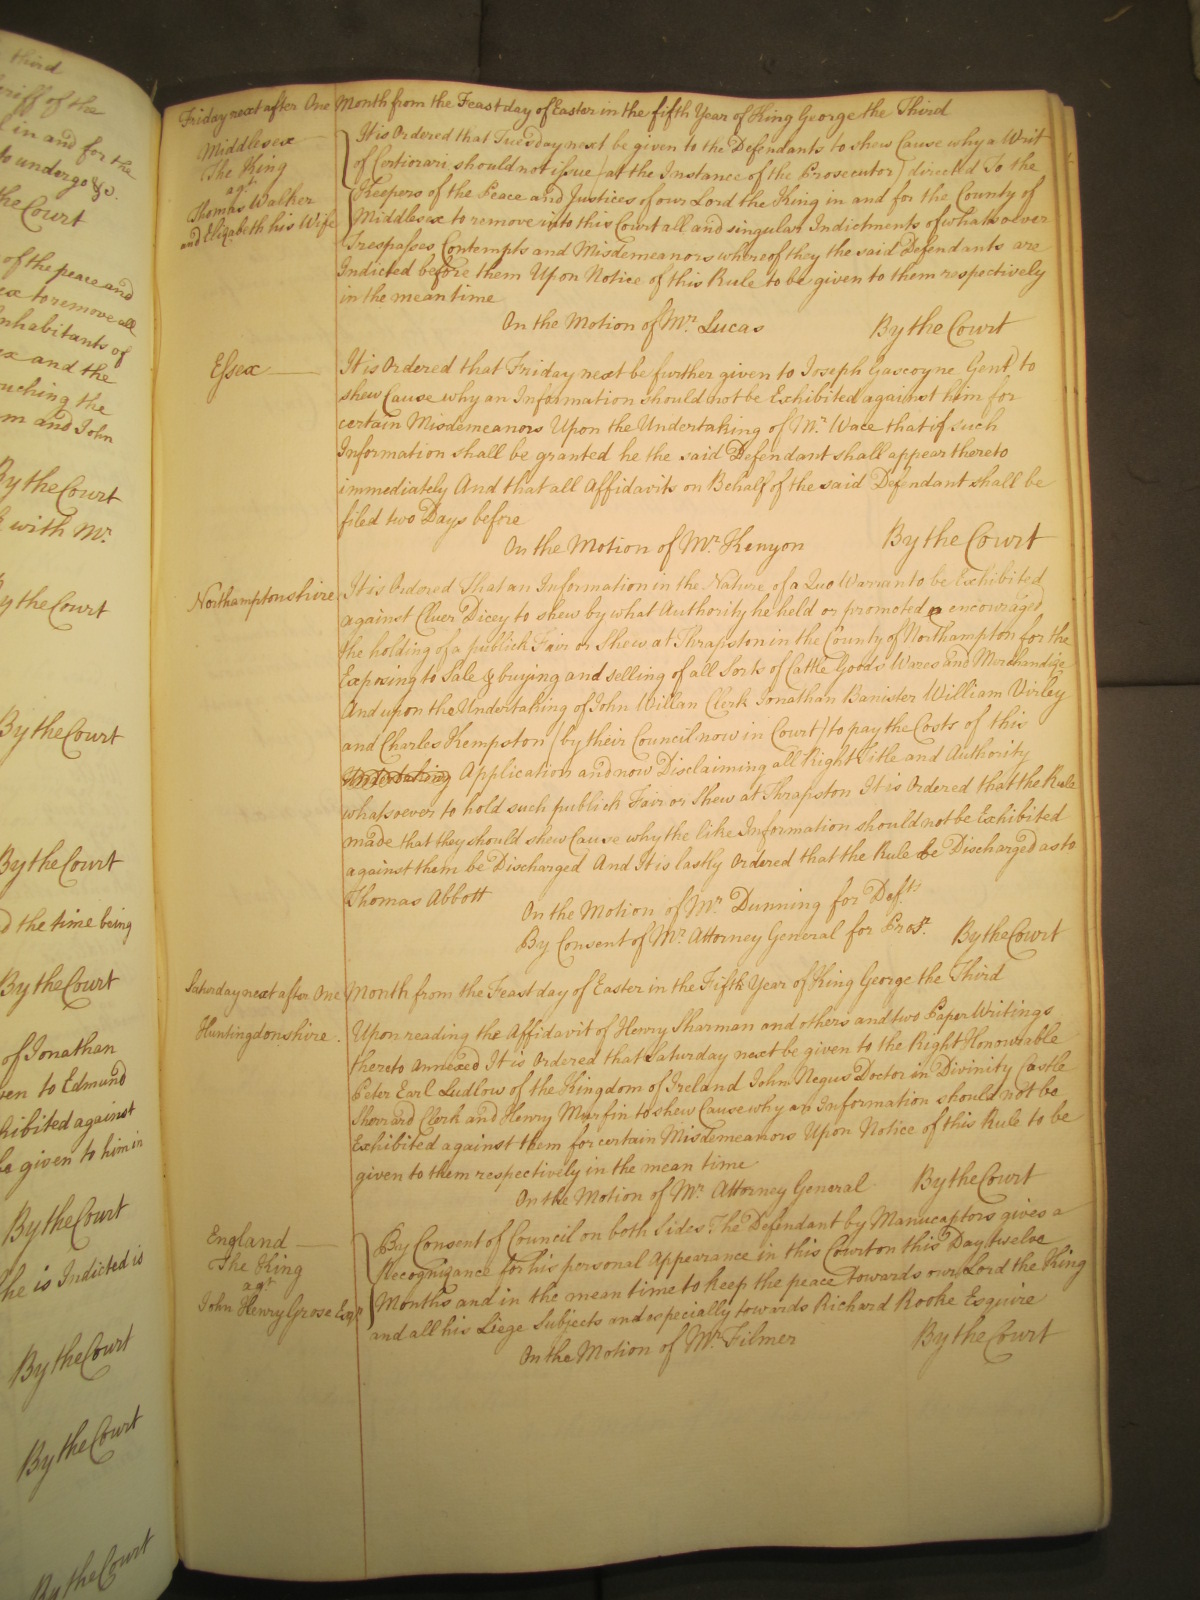 third
riff of the
in and for the
to undergo &c.
the Court
of the peace and
to remove all
nhabitants of
and the
uching the
m and John
By the Court
with Mr.
By the Court
By the Court
By the Court
the time being
By the Court
of Jonathan
ven to Edmund
hibited against
be given to him in
By the Court
he is Indicted is
By the Court
By the Court
By the Court
Friday next after One Month from the Feast day of Easter in the fifth Year of King George the Third
Middlesex
The King
agt.
Thomas Walker
and Elizabeth his Wife
It is Ordered that Tuesday next be given to the Defendants to shew Cause why a Writ
of Certiorari should not issue (at the Instance of the Prosecutor) directed To the
Keepers of the Peace and Justices of our Lord the King in and for the County of
Middlesex to remove into this Court all and singular Indictments of whatsoever
Trespasses Contempts and Misdemeanors whereof they the said Defendants are
Indicted before them Upon Notice of this Rule to be given to them respectively
in the mean time
On the Motion of Mr. Lucas By the Court
Essex
It is Ordered that Friday next be further given to Joseph Gascoyne Gent to
shew Cause why an Information should not be Exhibited against him for
certain Misdemeanors Upon the Undertaking of Mr. Wace that if such
Information shall be granted he the said Defendant shall appear thereto
immediately And that all Affidavits on Behalf of the said Defendant shall be
filed two Days before
On the Motion of Mr. Kenyon By the Court
Northamptonshire
It is Ordered That an Information in the Nature of a Quo Warranto be Exhibited
against Cluer Dicey to shew by what Authority he held or promoted encouraged
the holding of a publick Fair or Shew at Thrapston in the County of Northampton for the
Exposing to Sale & buying and selling of all Sorts of Cattle Goods Wares and Merchandize
And upon the Undertaking of John Willan Clerk Jonathan Banister William Virley
and Charles Kempston (by their Council now in Court) to pay the Costs of this
Undertaking Application and now Disclaiming all Right Title and Authority
whatsoever to hold such publick Fair or Shew at Thrapston It is Ordered that the Rule
made that they should shew Cause why the like Information should not be Exhibited
against them be Discharged And It is lastly Ordered that the Rule be Discharged as to
Thomas Abbott
On the Motion of Mr. Dunning for Defts.
By Consent of Mr. Attorney General for Prosr. By the Court
Saturday next after One Month from the Feast day of Easter in the Fifth Year of King George the Third
Huntingdonshire.
Upon reading the Affidavit of Henry Sharman and others and two Paper Writings
thereto Annexed It is Ordered that Saturday next be given to the Right Honourable
Peter Earl Ludlow of the Kingdom of Ireland John Negus Doctor in Divinity Castle
Sherrard Clerk and Henry Murfin to shew Cause why an Information should not be
Exhibited against them for certain Misdemeanors Upon Notice of this Rule to be
given to them respectively in the mean time
On the Motion of Mr. Attorney General By the Court
England
The King
agt.
John Henry Grose Esqr.
By Consent of Council on both Sides The Defendant by Manucaptors gives a
Recognizance for his personal Appearance in this Court on this Day twelve
Months and in the mean time to keep the peace towards our Lord the King
and all his Liege Subjects and especially towards Richard Rooke Esquire
On the Motion of Mr. Filmer By the Court